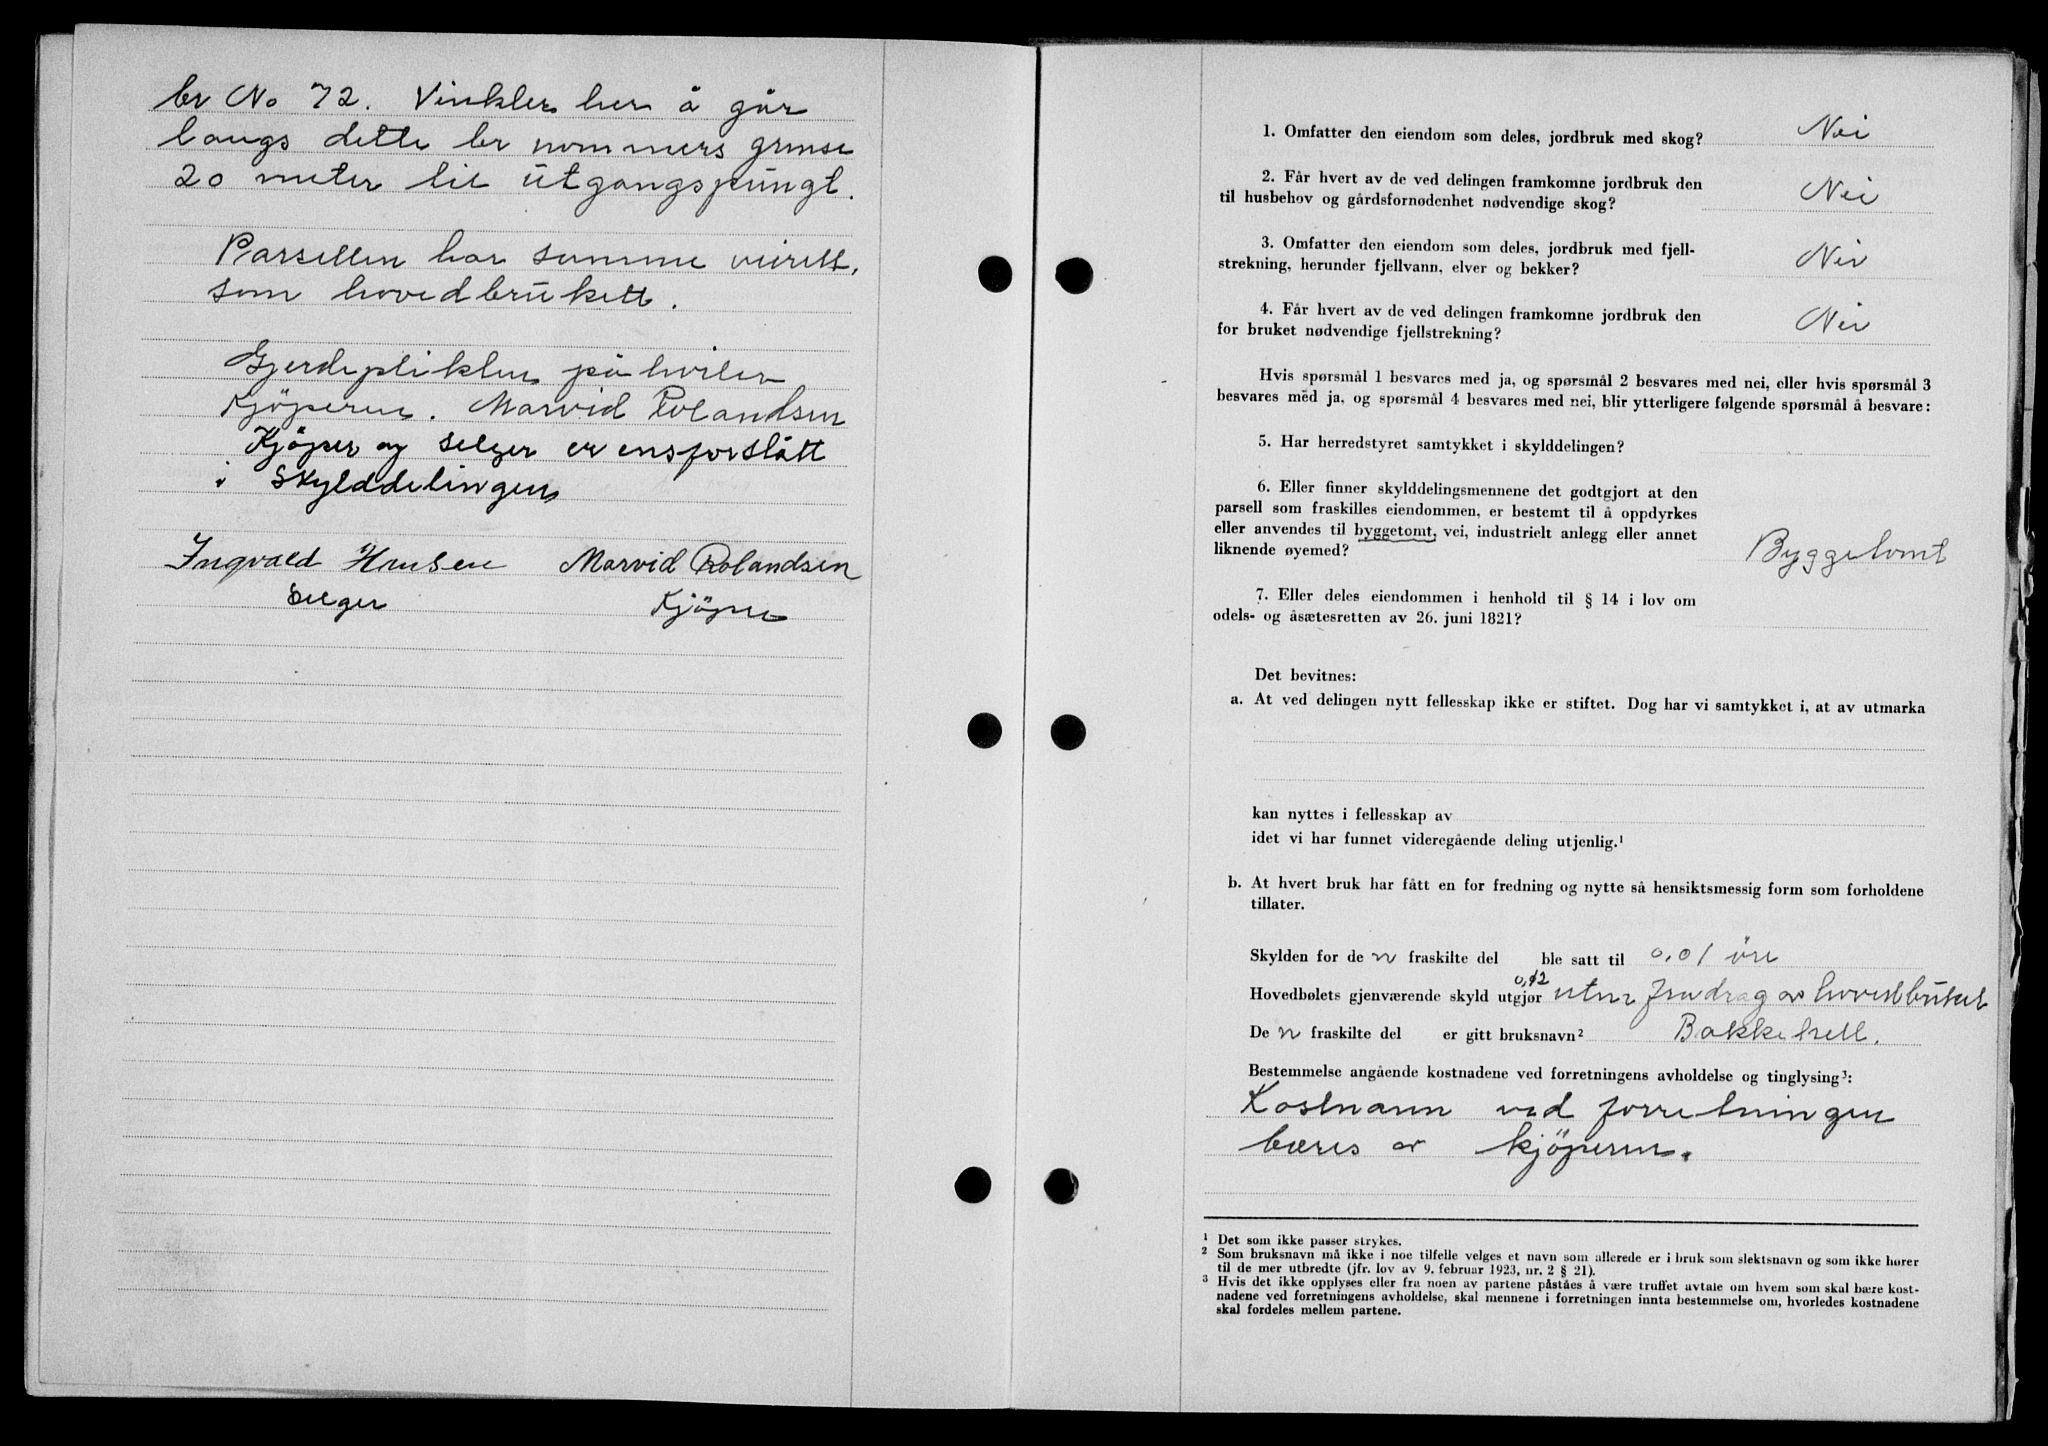 br No 72. Vinkler her å går
langs dette br nommers grense
20 meter til utgangspungt.
Parsellen har samme veirett,
som hovedbrukett.
Gjerdeplikten påhviler
Kjöperen. Marvid Rolandsen
Kjöper og selger er ensforslått
i Skylddelingen
Ingvald Hansen Marvid Rolandsen
Selger Kjöper
1. Omfatter den eiendom som deles, jordbruk med skog? Nei
2. Får hvert av de ved delingen framkomne jordbruk den
til husbehov og gårdsfornødenhet nødvendige skog? Nei
3. Omfatter den eiendom som deles, jordbruk med fjell-
strekning, herunder fjellvann, elver og bekker? Nei
4. Får hvert av de ved delingen framkomne jordbruk den
for bruket nødvendige fjellstrekning? Nei
Hvis spørsmål 1 besvares med ja, og spørsmål 2 besvares med nei, eller hvis spørsmål 3
besvares med ja, og spørsmål 4 besvares med nei, blir ytterligere følgende spørsmål å besvare:
5. Har herredstyret samtykket i skylddelingen?
6. Eller finner skylddelingsmennene det godtgjort at den
parsell som fraskilles eiendommen, er bestemt til å oppdyrkes
eller anvendes til byggetomt, vei, industrielt anlegg eller annet
liknende øyemed? Byggetomt
7. Eller deles eiendommen i henhold til § 14 i lov om
odels- og åsætesretten av 26. juni 1821?
Det bevitnes:
a. At ved delingen nytt fellesskap ikke er stiftet. Dog har vi samtykket i, at av utmarka
kan nyttes i fellesskap av
idet vi har funnet videregående deling utjenlig.¹
b. At hvert bruk har fått en for fredning og nytte så hensiktsmessig form som forholdene
tillater.
Skylden for de n fraskilte del ble satt til 0,01 øre
Hovedbølets gjenværende skyld utgjør 0,12 uten fradrag av hovedbruket
De n fraskilte del er gitt bruksnavn² Bakkehell.
Bestemmelse angående kostnadene ved forretningens avholdelse og tinglysing³:
Kostnann ved forretningen
bæres av kjöperen.
¹ Det som ikke passer strykes.
² Som bruksnavn må ikke i noe tilfelle velges et navn som allerede er i bruk som slektsnavn og som ikke hører
til de mer utbredte (jfr. lov av 9. februar 1923, nr. 2 § 21).
³ Hvis det ikke opplyses eller fra noen av partene påståes å være truffet avtale om hvem som skal bære kost-
nadene ved forretningens avholdelse, skal mennene i forretningen innta bestemmelse om, hvorledes kostnadene
skal fordeles mellem partene.